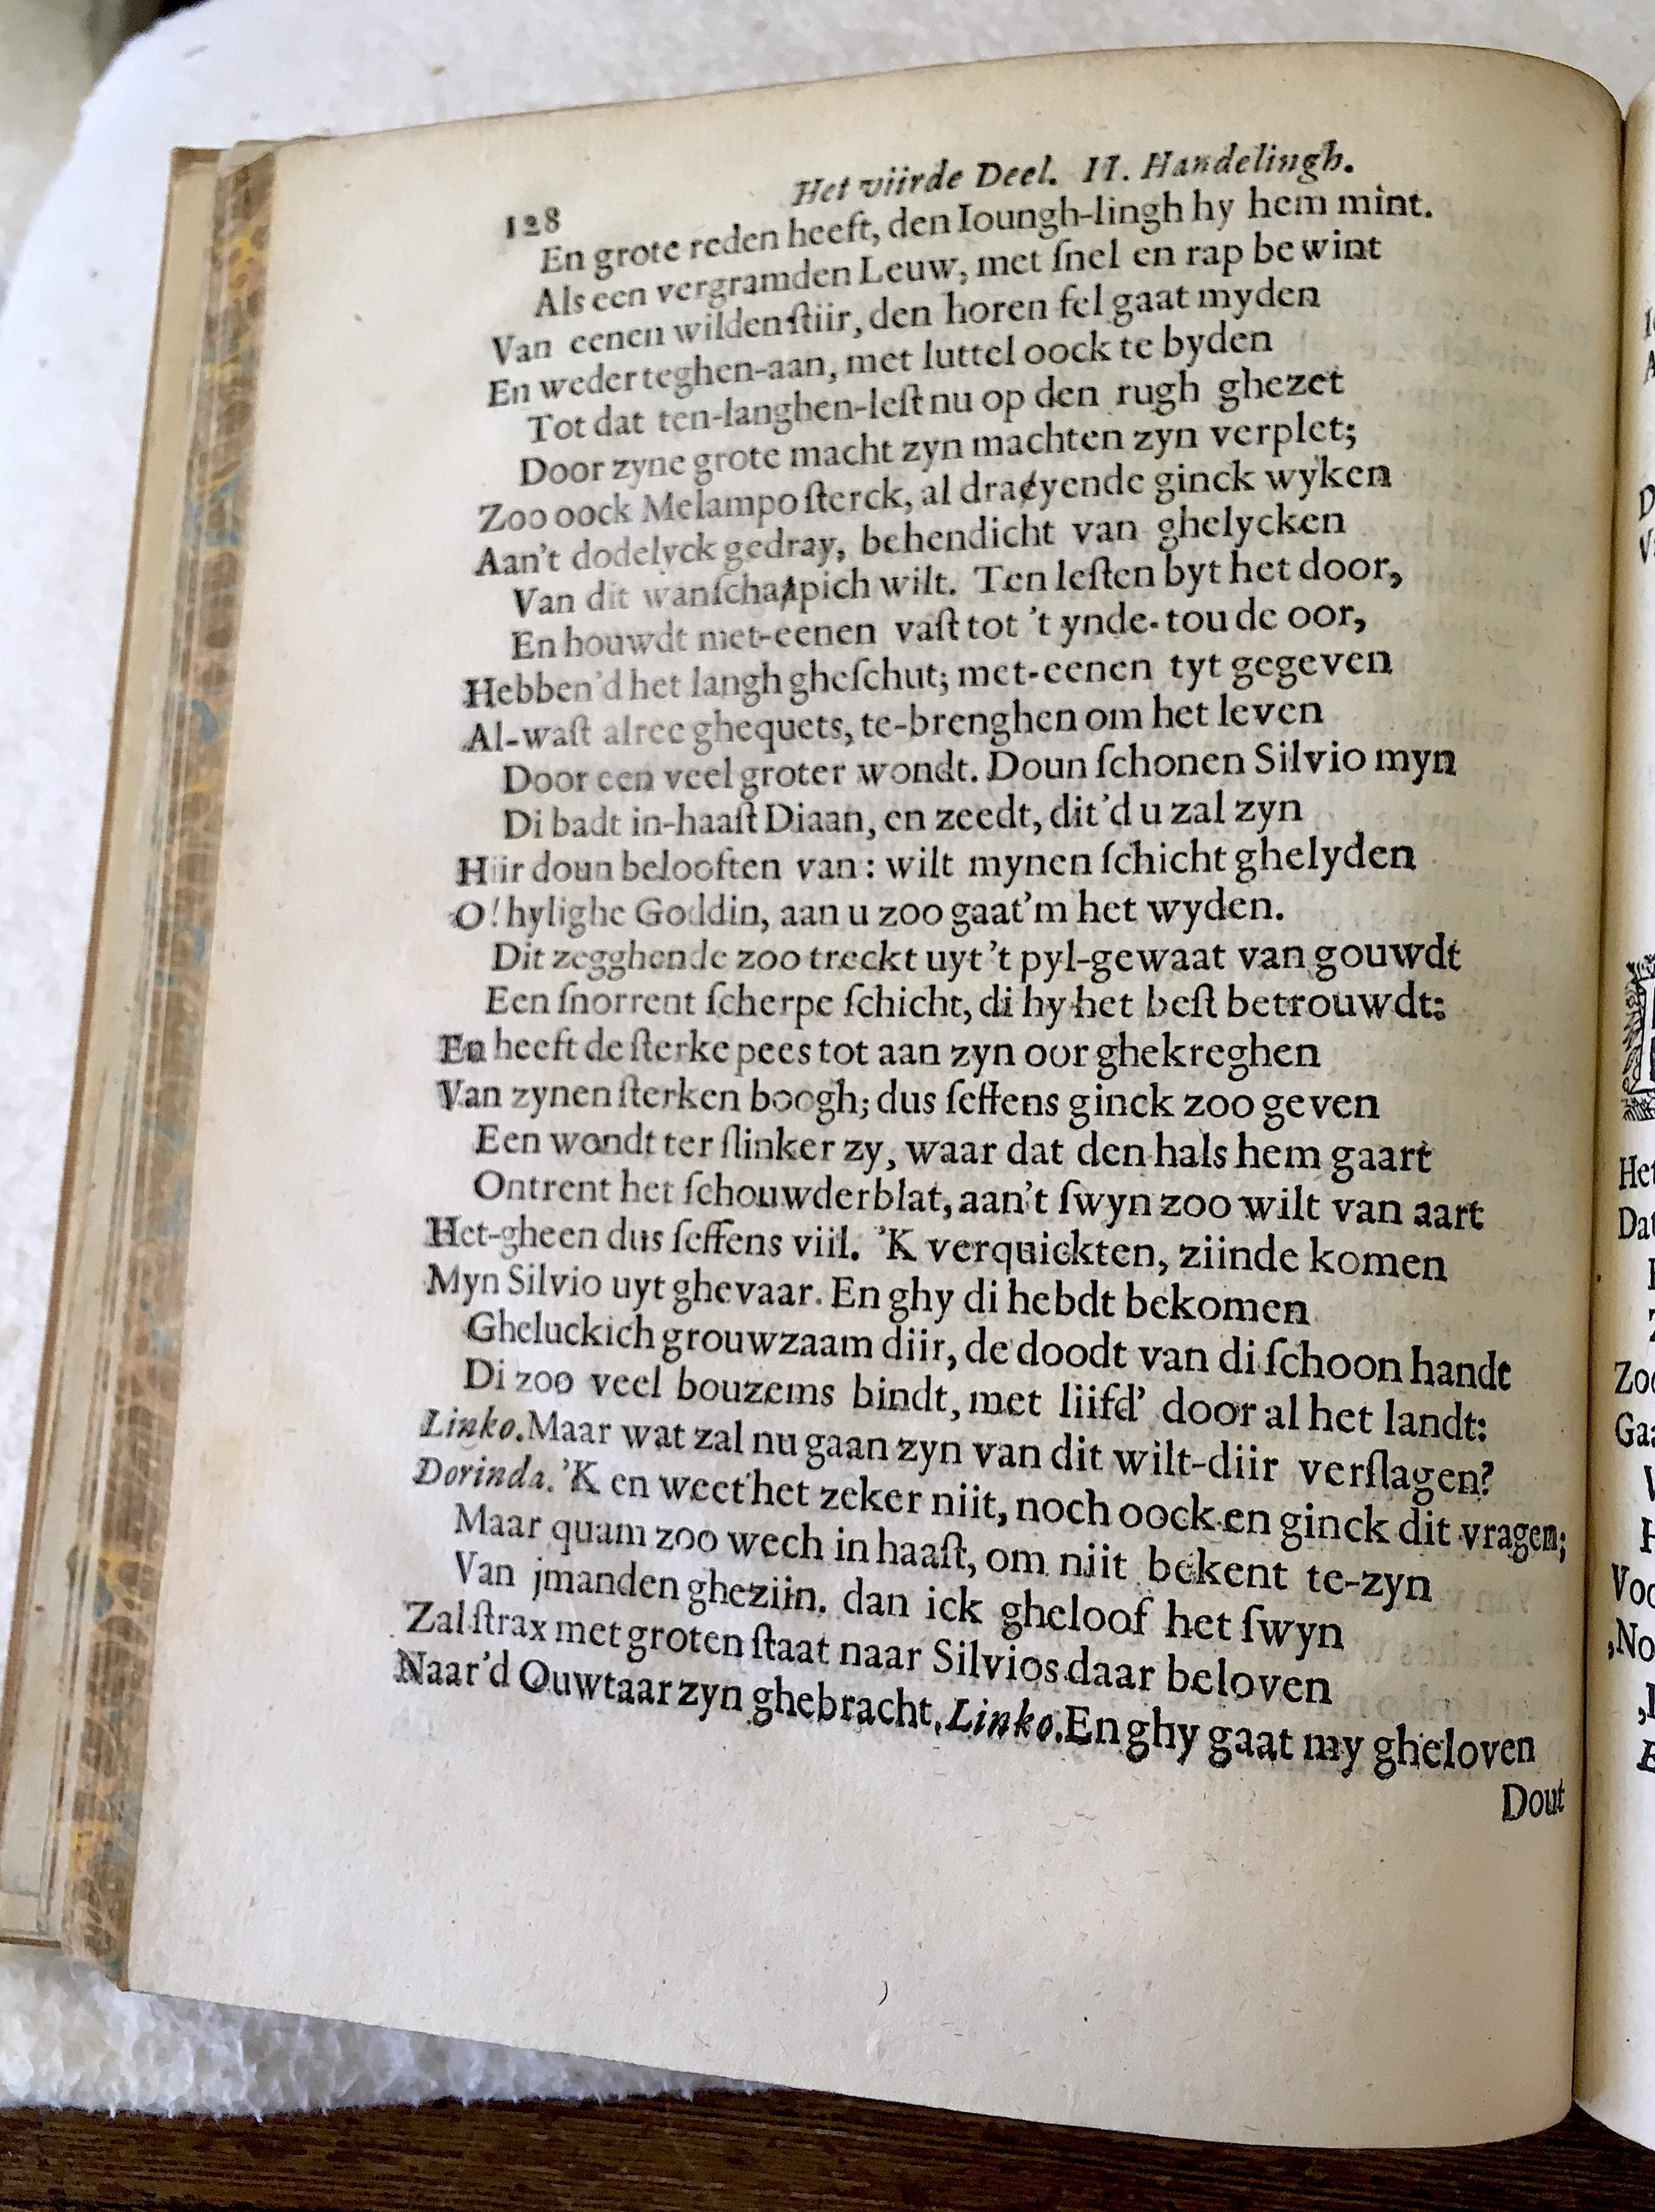 128
Het viirde Deel. II. Handelingh.
En grote reden heeft, den Ioungh-lingh hy hem mint.
Als een vergramden Leuw, met ſnel en rap bewint
Van eenen wilden ſtiir, den horen fel gaat myden
En weder teghen-aan, met luttel oock te byden
Tot dat ten-langhen-leſt nu op den rugh ghezet
Door zyne grote macht zyn machten zyn verplet;
Zoo oock Melampo ſterck, al draeyende ginck wyken
Aan't dodelyck gedray, behendicht van ghelycken
Van dit wanſchapich wilt. Ten leſten byt het door,
En houwdt met-eenen vaſt tot 't ynde-tou de oor,
Hebben'd het langh gheſchut; met-eenen tyt gegeven
Al-waſt alree ghequets, te-brenghen om het leven
Door een veel groter wondt. Doun ſchonen Silvio myn
Di badt in-haaſt Diaan, en zeedt, dit'd u zal zyn
Hiir doun belooften van: wilt mynen ſchicht ghelyden
O! hylighe Goddin, aan u zoo gaat'm het wyden.
Dit zegghende zoo treckt uyt 't pyl-gewaat van gouwdt
Een ſnorrent ſcherpe ſchicht, di hy het beſt betrouwdt:
En heeft de ſterke pees tot aan zyn oor ghekreghen
Van zynen ſterken boogh; dus ſeffens ginck zoo geven
Een wondt ter ſlinker zy, waar dat den hals hem gaart
Ontrent het ſchouwderblat, aan't ſwyn zoo wilt van aart
Het-gheen dus ſeffens viil. 'K verquickten, ziinde komen
Myn Silvio uyt ghevaar. En ghy di hebdt bekomen
Gheluckich grouwzaam diir, de doodt van di ſchoon handt
Di zoo veel bouzems bindt, met liifd' door al het landt:
Linko. Maar wat zal nu gaan zyn van dit wilt-diir verſlagen?
Dorinda. 'K en weet het zeker niit, noch oock en ginck dit vragen;
Maar quam zoo wech in haaſt, om niit bekent te-zyn
Van jmanden gheziin. dan ick gheloof het ſwyn
Zal ſtrax met groten ſtaat naar Silvios daar beloven
Naar'd Ouwtaar zyn ghebracht. Linko. En ghy gaat my gheloven
Dout
Het
Dat
Zoo
Gaa